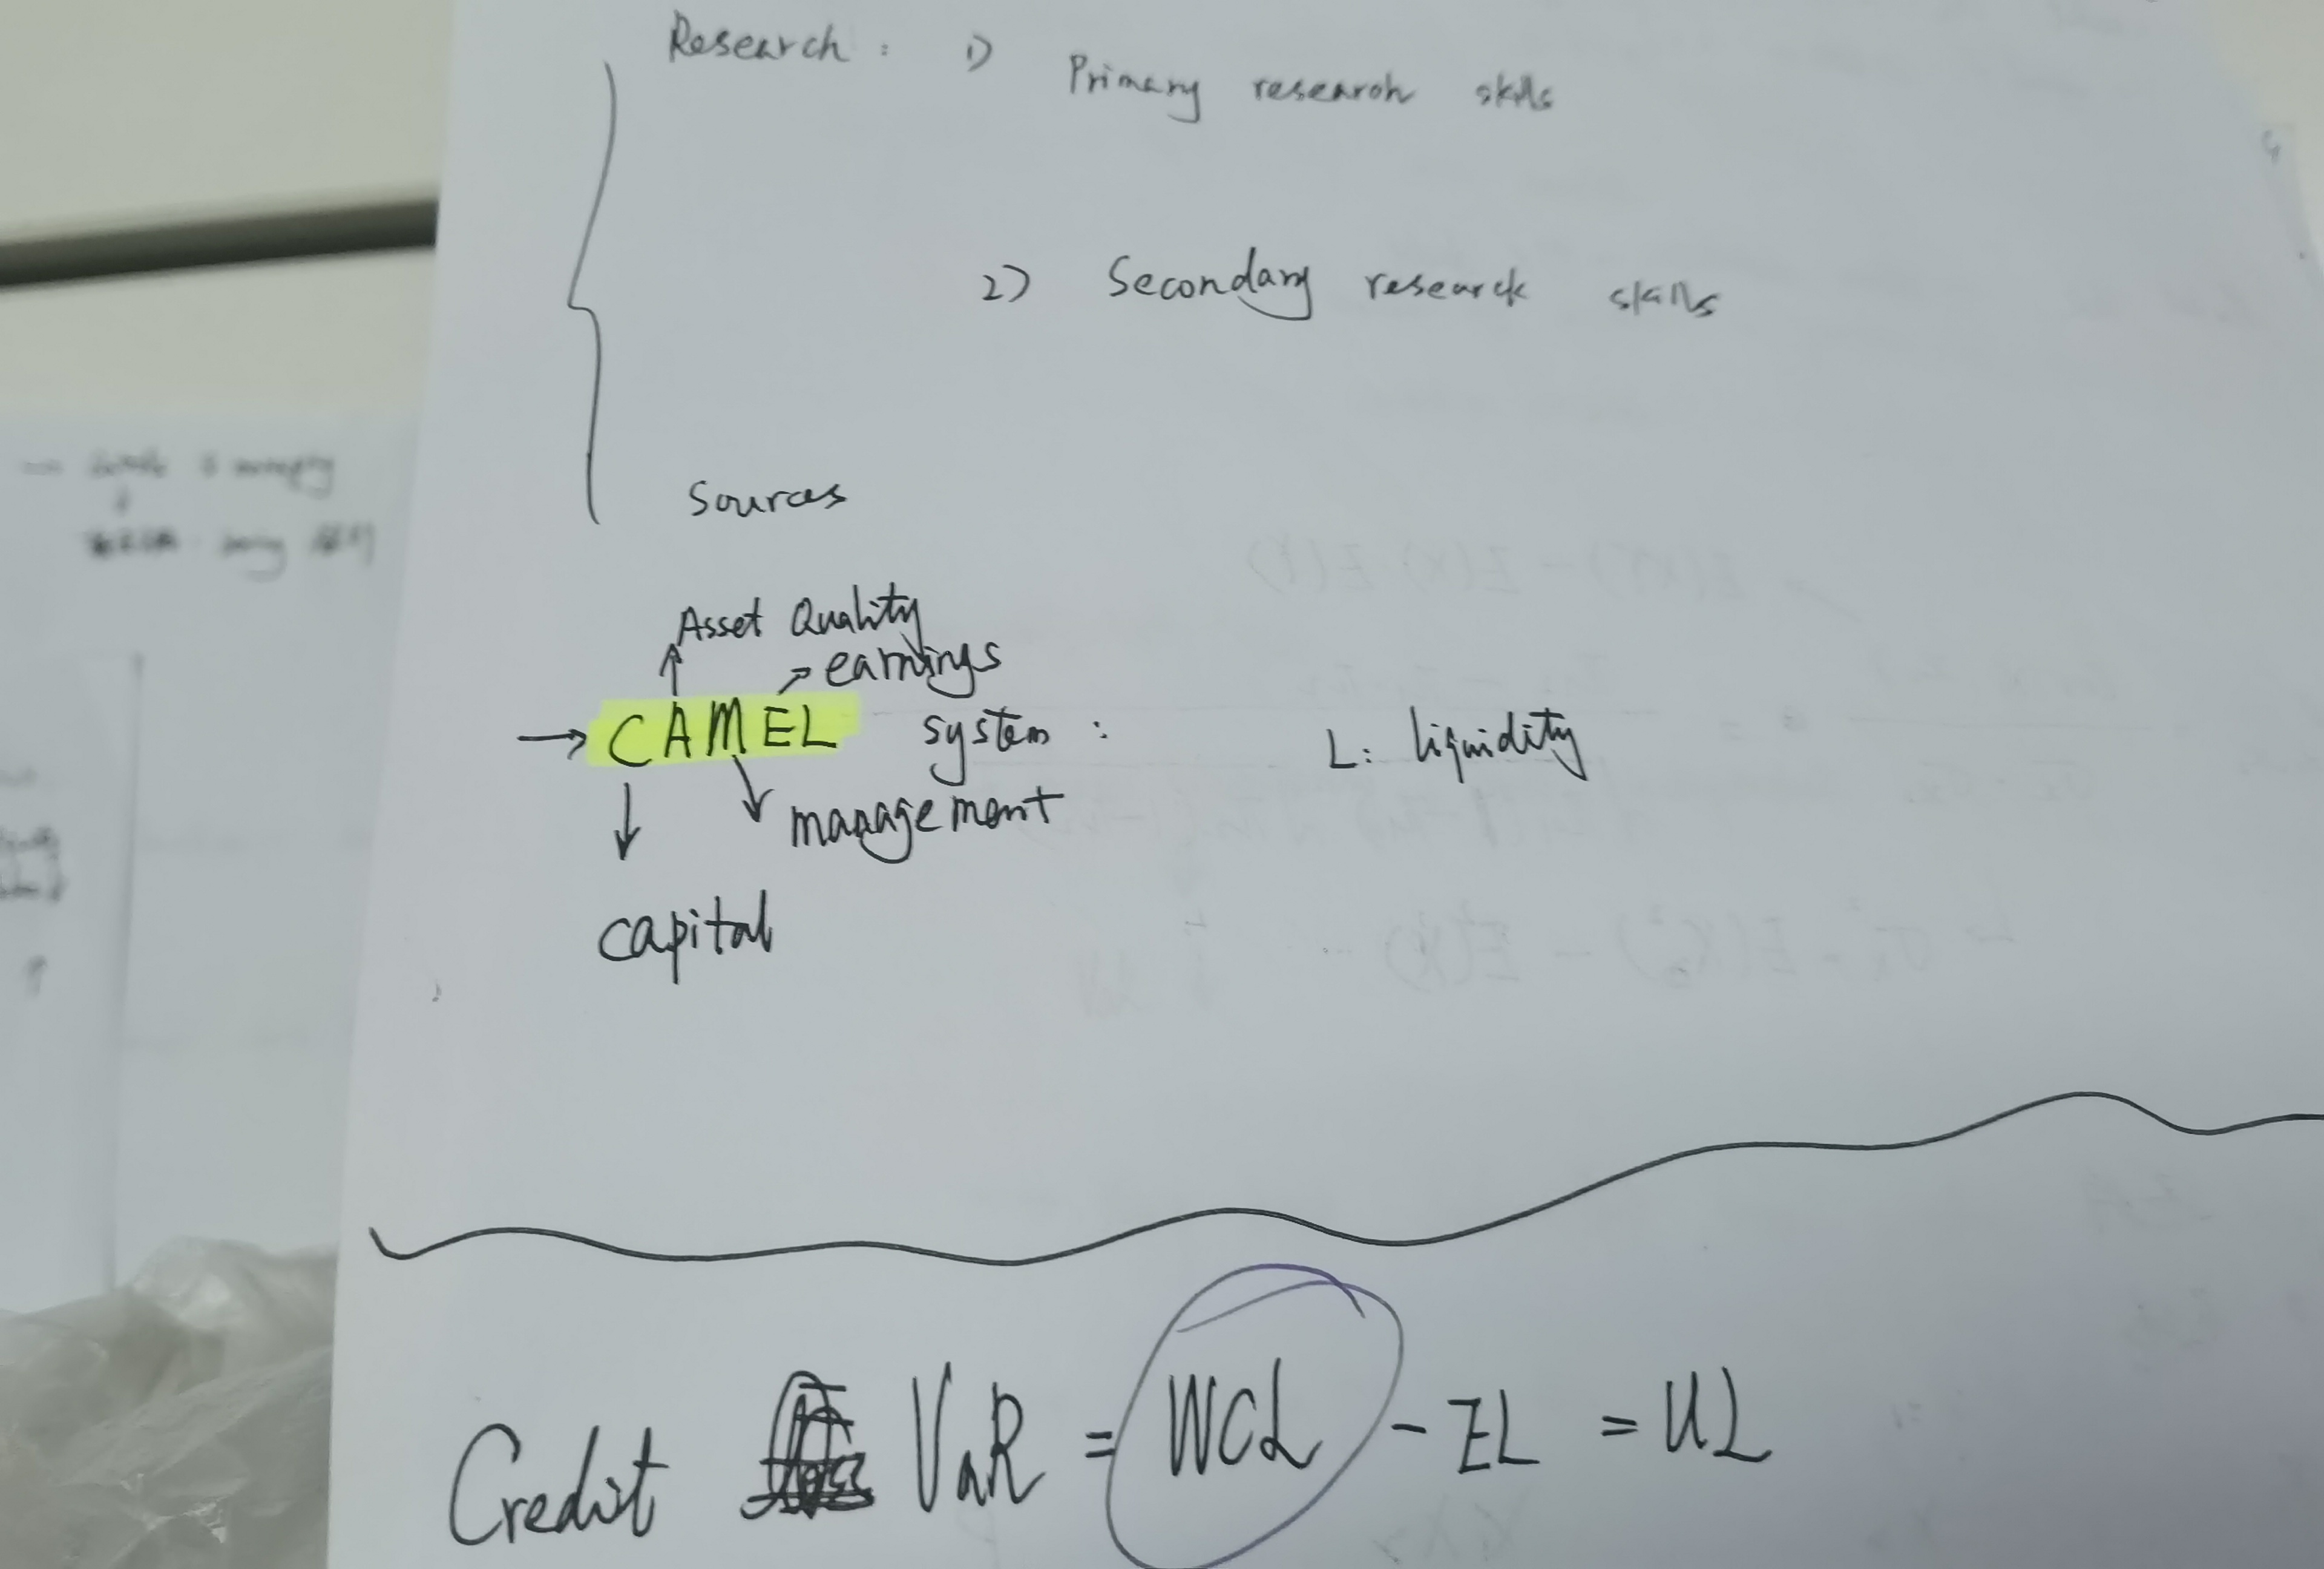 Research : 1) Primary research skills
2) Secondary research skills
Sources
Asset Quality
earnings
→ CAMEL system : L: liquidity
management
capital
Credit VaR = WCL - EL = UL